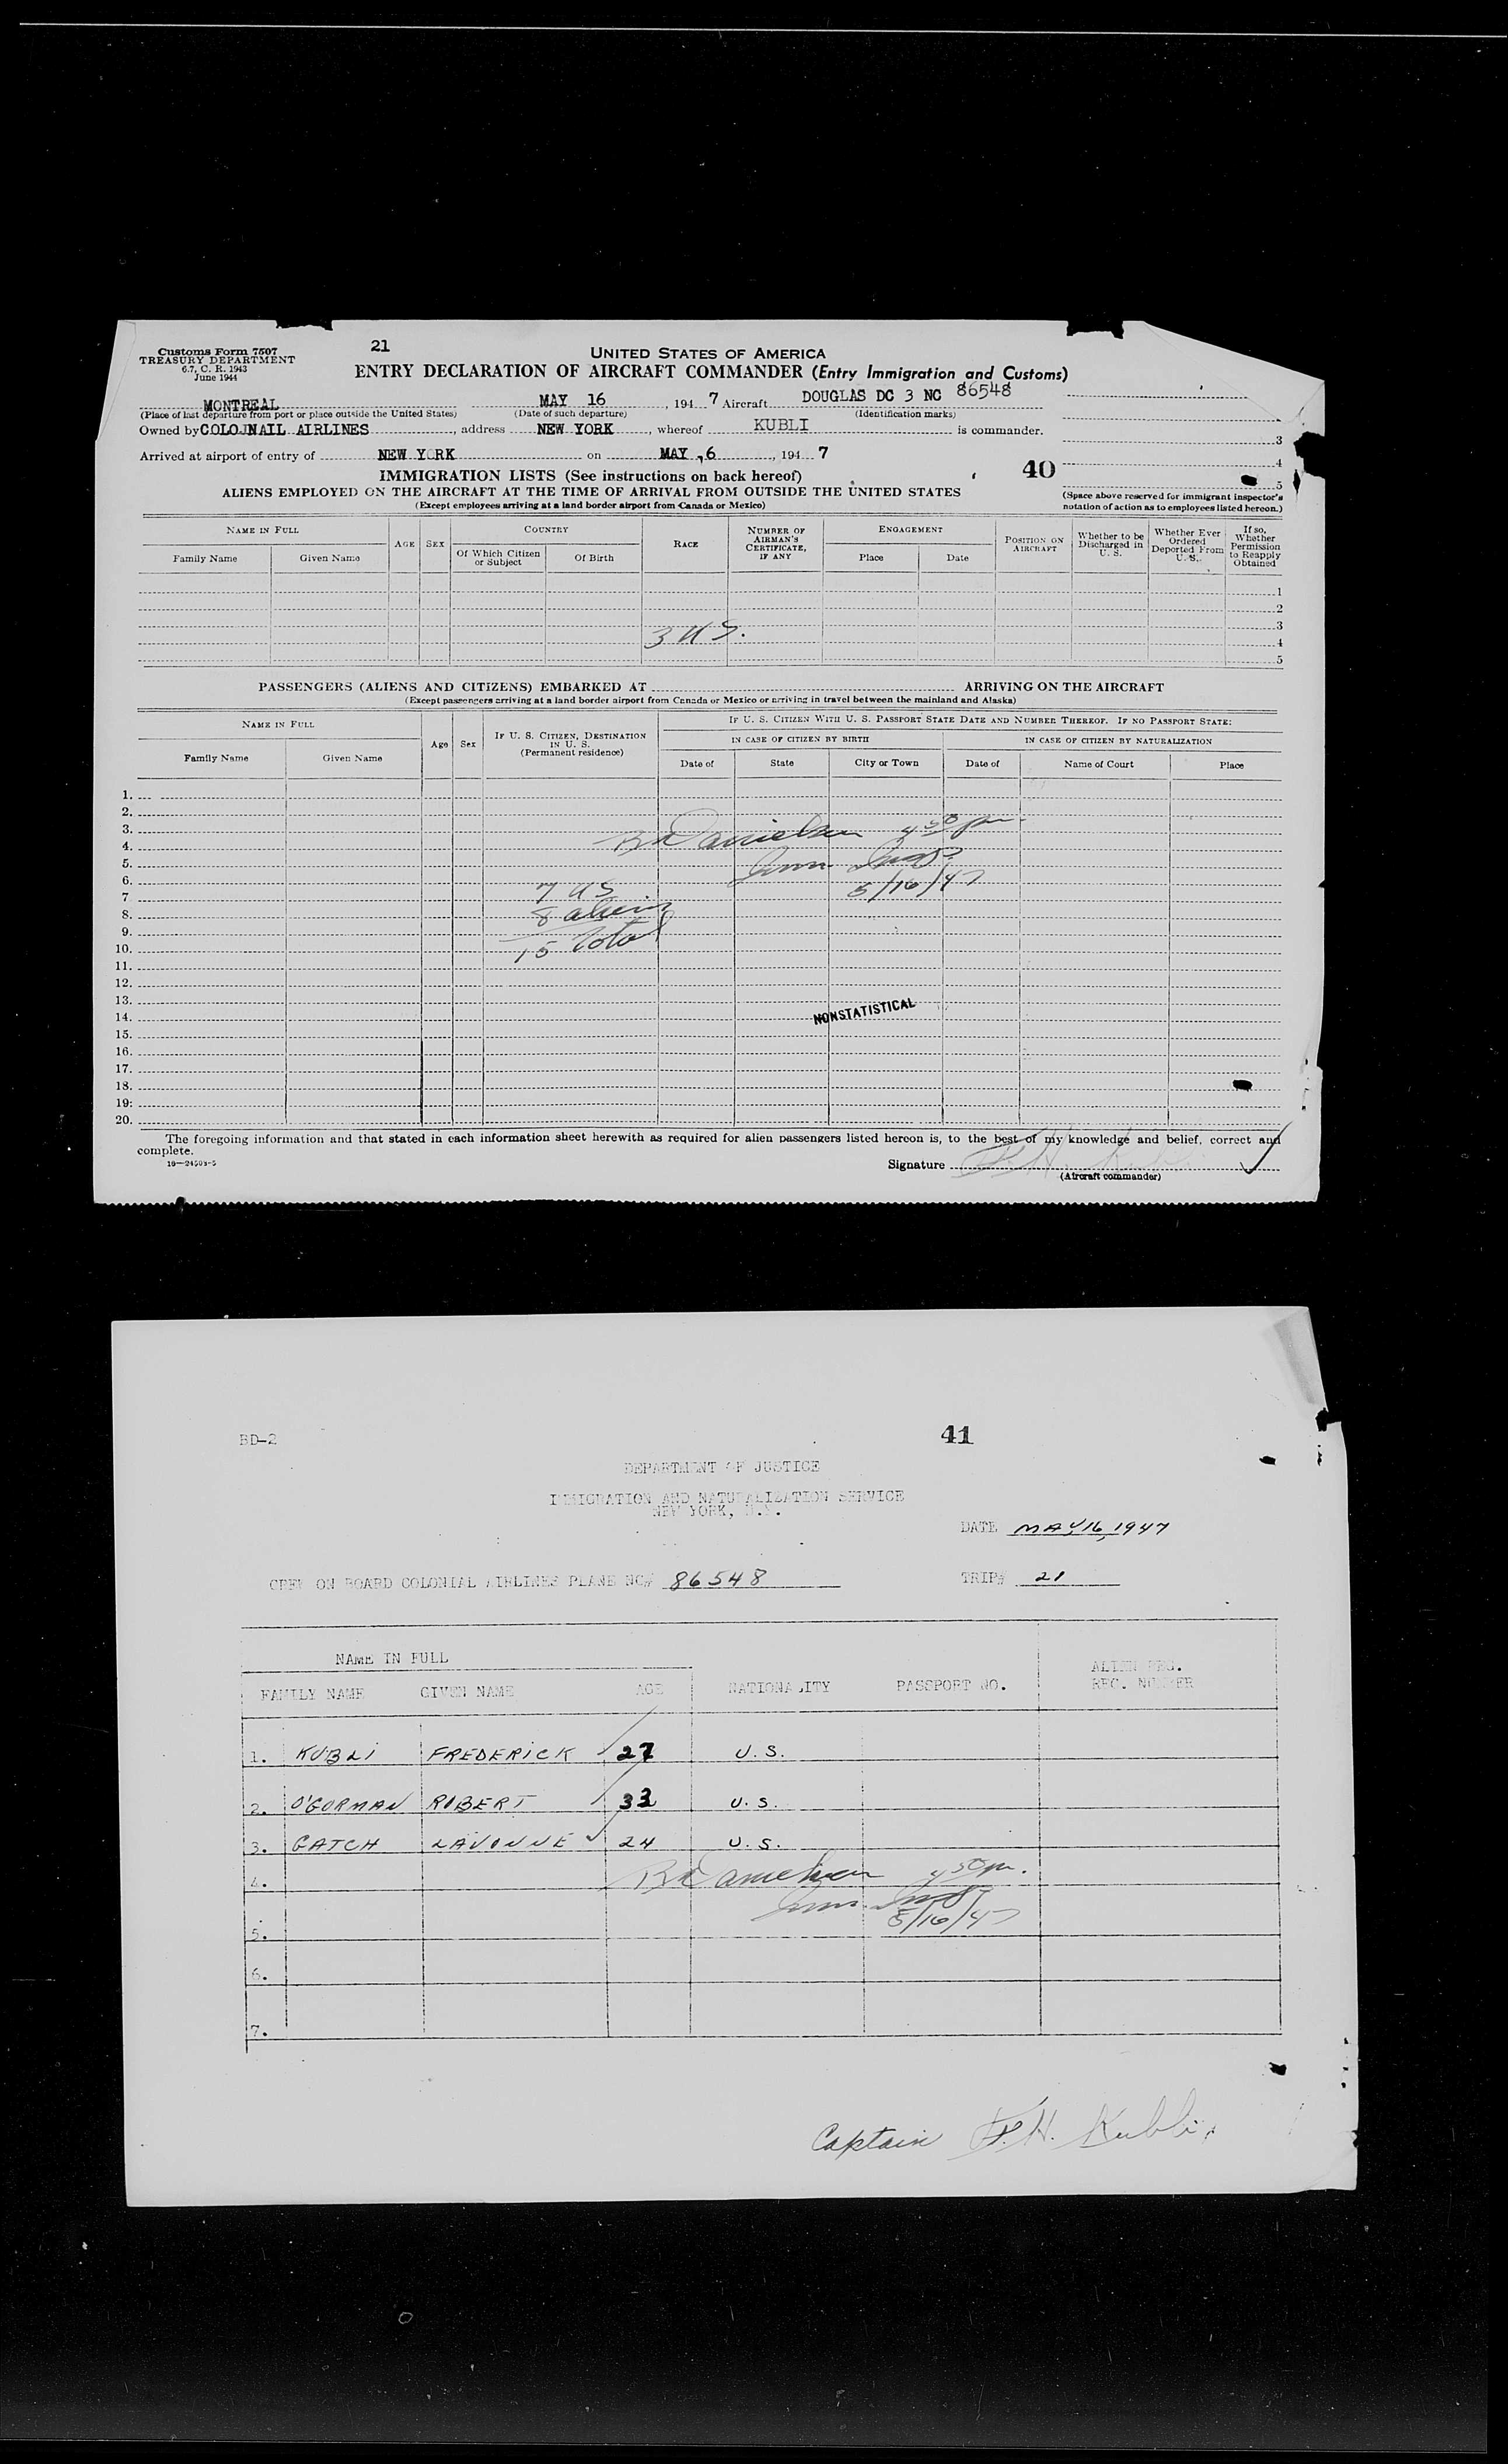 Customs Form 7507
TREASURY DEPARTMENT
6.7, C. R. 1943
June 1944
21
UNITED STATES OF AMERICA
ENTRY DECLARATION OF AIRCRAFT COMMANDER (Entry Immigration and Customs)
MONTREAL MAY 16, 1947 Aircraft DOUGLAS DC 3 NC 86548
(Place of last departure from port or place outside the United States) (Date of such departure) (Identification marks)
Owned by COLOJNAIL AIRLINES, address NEW YORK, whereof KUBLI is commander.
3
Arrived at airport of entry of NEW Y RK on MAY 6, 1947
4
IMMIGRATION LISTS (See instructions on back hereof) 40
5
ALIENS EMPLOYED ON THE AIRCRAFT AT THE TIME OF ARRIVAL FROM OUTSIDE THE UNITED STATES
(Except employees arriving at a land border airport from Canada or Mexico)
(Space above reserved for immigrant inspector's
notation of action as to employees listed hereon.)
NAME IN FULL
Family Name Given Name
AGE SEX
COUNTRY
Of Which Citizen or Subject Of Birth
RACE
NUMBER OF AIRMAN'S CERTIFICATE, IF ANY
ENGAGEMENT
Place Date
POSITION ON AIRCRAFT
Whether to be Discharged in U. S.
Whether Ever Ordered Deported From U. S.
If so, Whether Permission to Reapply Obtained
1
2
3
3 US.
4
5
PASSENGERS (ALIENS AND CITIZENS) EMBARKED AT ARRIVING ON THE AIRCRAFT
(Except passengers arriving at a land border airport from Canada or Mexico or arriving in travel between the mainland and Alaska)
NAME IN FULL
Family Name Given Name
Age Sex
IF U. S. CITIZEN, DESTINATION IN U. S.
(Permanent residence)
IF U. S. CITIZEN WITH U. S. PASSPORT STATE DATE AND NUMBER THEREOF. IF NO PASSPORT STATE:
IN CASE OF CITIZEN BY BIRTH IN CASE OF CITIZEN BY NATURALIZATION
Date of State City or Town Date of Name of Court Place
1.
2.
3.
Danielsen 4 50 pm.
4.
5.
Imm. Insp.
6.
7 US 5/16/47
7
8.
8 aliens
9.
15 Total
10.
11.
12.
13.
NONSTATISTICAL
14.
15.
16.
17.
18.
19.
20.
The foregoing information and that stated in each information sheet herewith as required for alien passengers listed hereon is, to the best of my knowledge and belief, correct and
complete.
16—24503-5
Signature F. H. Kubli
(Aircraft commander)
BD-2 41
DEPARTMENT OF JUSTICE
IMMIGRATION AND NATURALIZATION SERVICE
NEW YORK, N.Y.
DATE MAY 16, 1947
CREW ON BOARD COLONIAL AIRLINES PLANE NC# 86548 TRIP# 21
NAME IN FULL
FAMILY NAME GIVEN NAME AGE NATIONALITY PASSPORT NO. ALIEN REG. REC. NUMBER
1. KUBLI FREDERICK 27 U. S.
2. O'GORMAN ROBERT 33 U. S.
3. GATCH LAVONNE 24 U. S.
4. Danielsen 4 50 pm.
Imm. Insp
5. 5/16/47
6.
7.
Captain F. H. Kubli